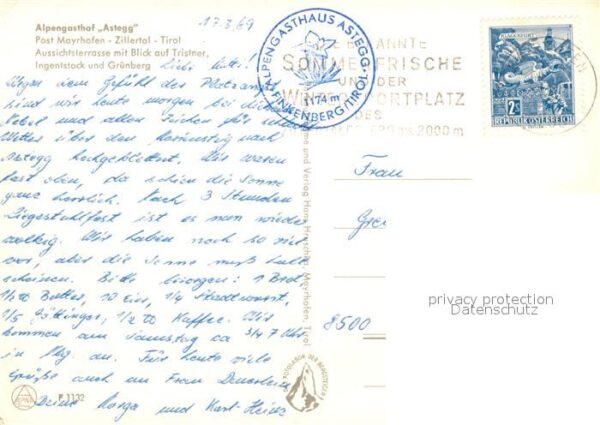 Alpengasthof „Astegg"
Post Mayrhofen - Zillertal - Tirol
Aussichtsterrasse mit Blick auf Tristner,
Ingentstock und Grünberg
17.3.69
ALPENGASTHAUS ASTEGG
1174 m
FINKENBERG/TIROL
BEKANNTE
SOMMERFRISCHE
UND DER
WINTERSPORTPLATZ
DES
630 bis 2000 m
KLAGENFURT
2S
REPUBLIK ÖSTERREICH
Liebe Mutti!
Wegen dem Gefühl des
sind wir heute morgen bei
Nebel und allen Zeichen für
Wetter über den nach
Astegg hochgeklettert. Wir waren
fast oben, da schien die Sonne
ganz herrlich. Nach 3 Stunden
Liegestuhlfest ist es nun wieder
wolkig. Wir haben noch so viel
vor, aber die Sonne muß halt
scheinen. Bitte besorgen: 1 Brot
1/2 ℔ Butter, 10 Eier, 1/4 Stadtwurst,
1/5 Göttinger, 1/2 ℔ Kaffee. Wir
kommen am Samstag ca 3/4 7 Uhr
in Nbg. an. Für heute viele
Grüße auch an Frau
Deine und Karl-Heinz
Frau
8500
privacy protection
Datenschutz
F 1132